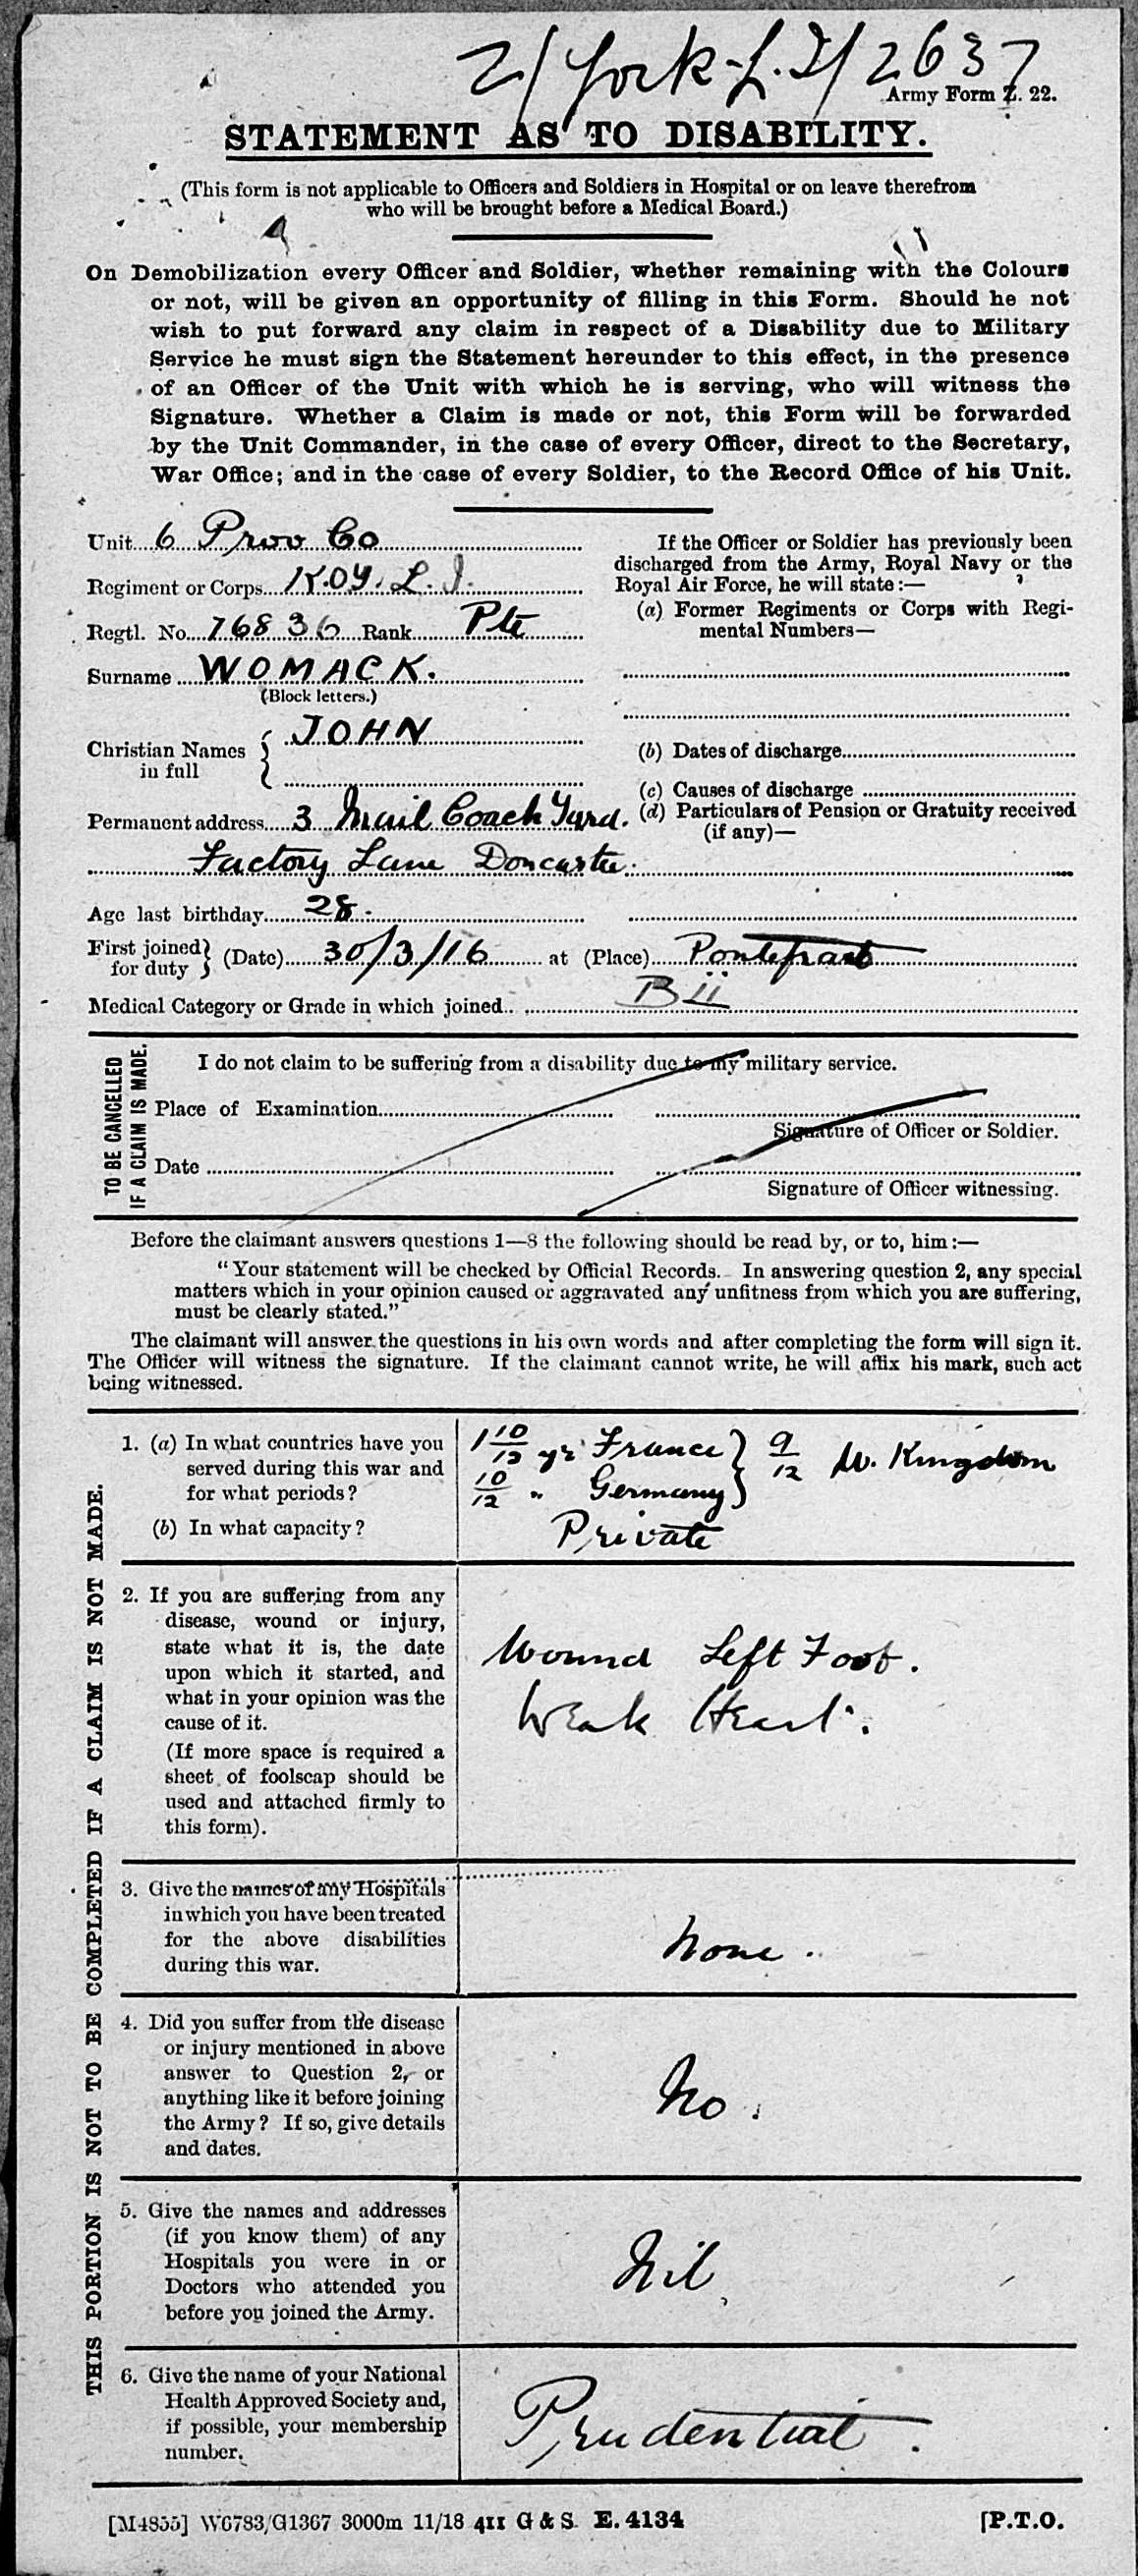 2/York.L.I/2637
Army Form Z. 22.
STATEMENT AS TO DISABILITY.
(This form is not applicable to Officers and Soldiers in Hospital or on leave therefrom
who will be brought before a Medical Board.)
On Demobilization every Officer and Soldier, whether remaining with the Colours
or not, will be given an opportunity of filling in this Form. Should he not
wish to put forward any claim in respect of a Disability due to Military
Service he must sign the Statement hereunder to this effect, in the presence
of an Officer of the Unit with which he is serving, who will witness the
Signature. Whether a Claim is made or not, this Form will be forwarded
by the Unit Commander, in the case of every Officer, direct to the Secretary,
War Office; and in the case of every Soldier, to the Record Office of his Unit.
Unit 6 Prov Co
Regiment or Corps K.O.Y.L.I.
Regtl. No. 76836 Rank Pte
Surname WOMACK.
(Block letters.)
Christian Names in full JOHN
Permanent address 3 Mail Coach Yard.
Factory Lane Doncaster.
Age last birthday 28.
If the Officer or Soldier has previously been
discharged from the Army, Royal Navy or the
Royal Air Force, he will state:—
(a) Former Regiments or Corps with Regi-
mental Numbers—
(b) Dates of discharge
(c) Causes of discharge
(d) Particulars of Pension or Gratuity received
(if any)—
First joined for duty (Date) 30/3/16 at (Place) Pontefract
Medical Category or Grade in which joined B ii
TO BE CANCELLED
IF A CLAIM IS MADE.
I do not claim to be suffering from a disability due to my military service.
Place of Examination
Signature of Officer or Soldier.
Date
Signature of Officer witnessing.
Before the claimant answers questions 1—8 the following should be read by, or to, him:—
"Your statement will be checked by Official Records. In answering question 2, any special
matters which in your opinion caused or aggravated any unfitness from which you are suffering,
must be clearly stated."
The claimant will answer the questions in his own words and after completing the form will sign it.
The Officer will witness the signature. If the claimant cannot write, he will affix his mark, such act
being witnessed.
THIS PORTION IS NOT TO BE COMPLETED IF A CLAIM IS NOT MADE.
1. (a) In what countries have you
served during this war and
for what periods?
1 10/12 yr France } 9/12 U. Kingdom
10/12 " Germany }
(b) In what capacity?
Private
2. If you are suffering from any
disease, wound or injury,
state what it is, the date
upon which it started, and
what in your opinion was the
cause of it.
(If more space is required a
sheet of foolscap should be
used and attached firmly to
this form).
Wound Left Foot.
Weak Heart.
3. Give the names of any Hospitals
in which you have been treated
for the above disabilities
during this war.
None.
4. Did you suffer from the disease
or injury mentioned in above
answer to Question 2, or
anything like it before joining
the Army? If so, give details
and dates.
No.
5. Give the names and addresses
(if you know them) of any
Hospitals you were in or
Doctors who attended you
before you joined the Army.
Nil
6. Give the name of your National
Health Approved Society and,
if possible, your membership
number.
Prudential.
[M4855] W6783/G1367 3000m 11/18 411 G & S. E. 4134
[P.T.O.